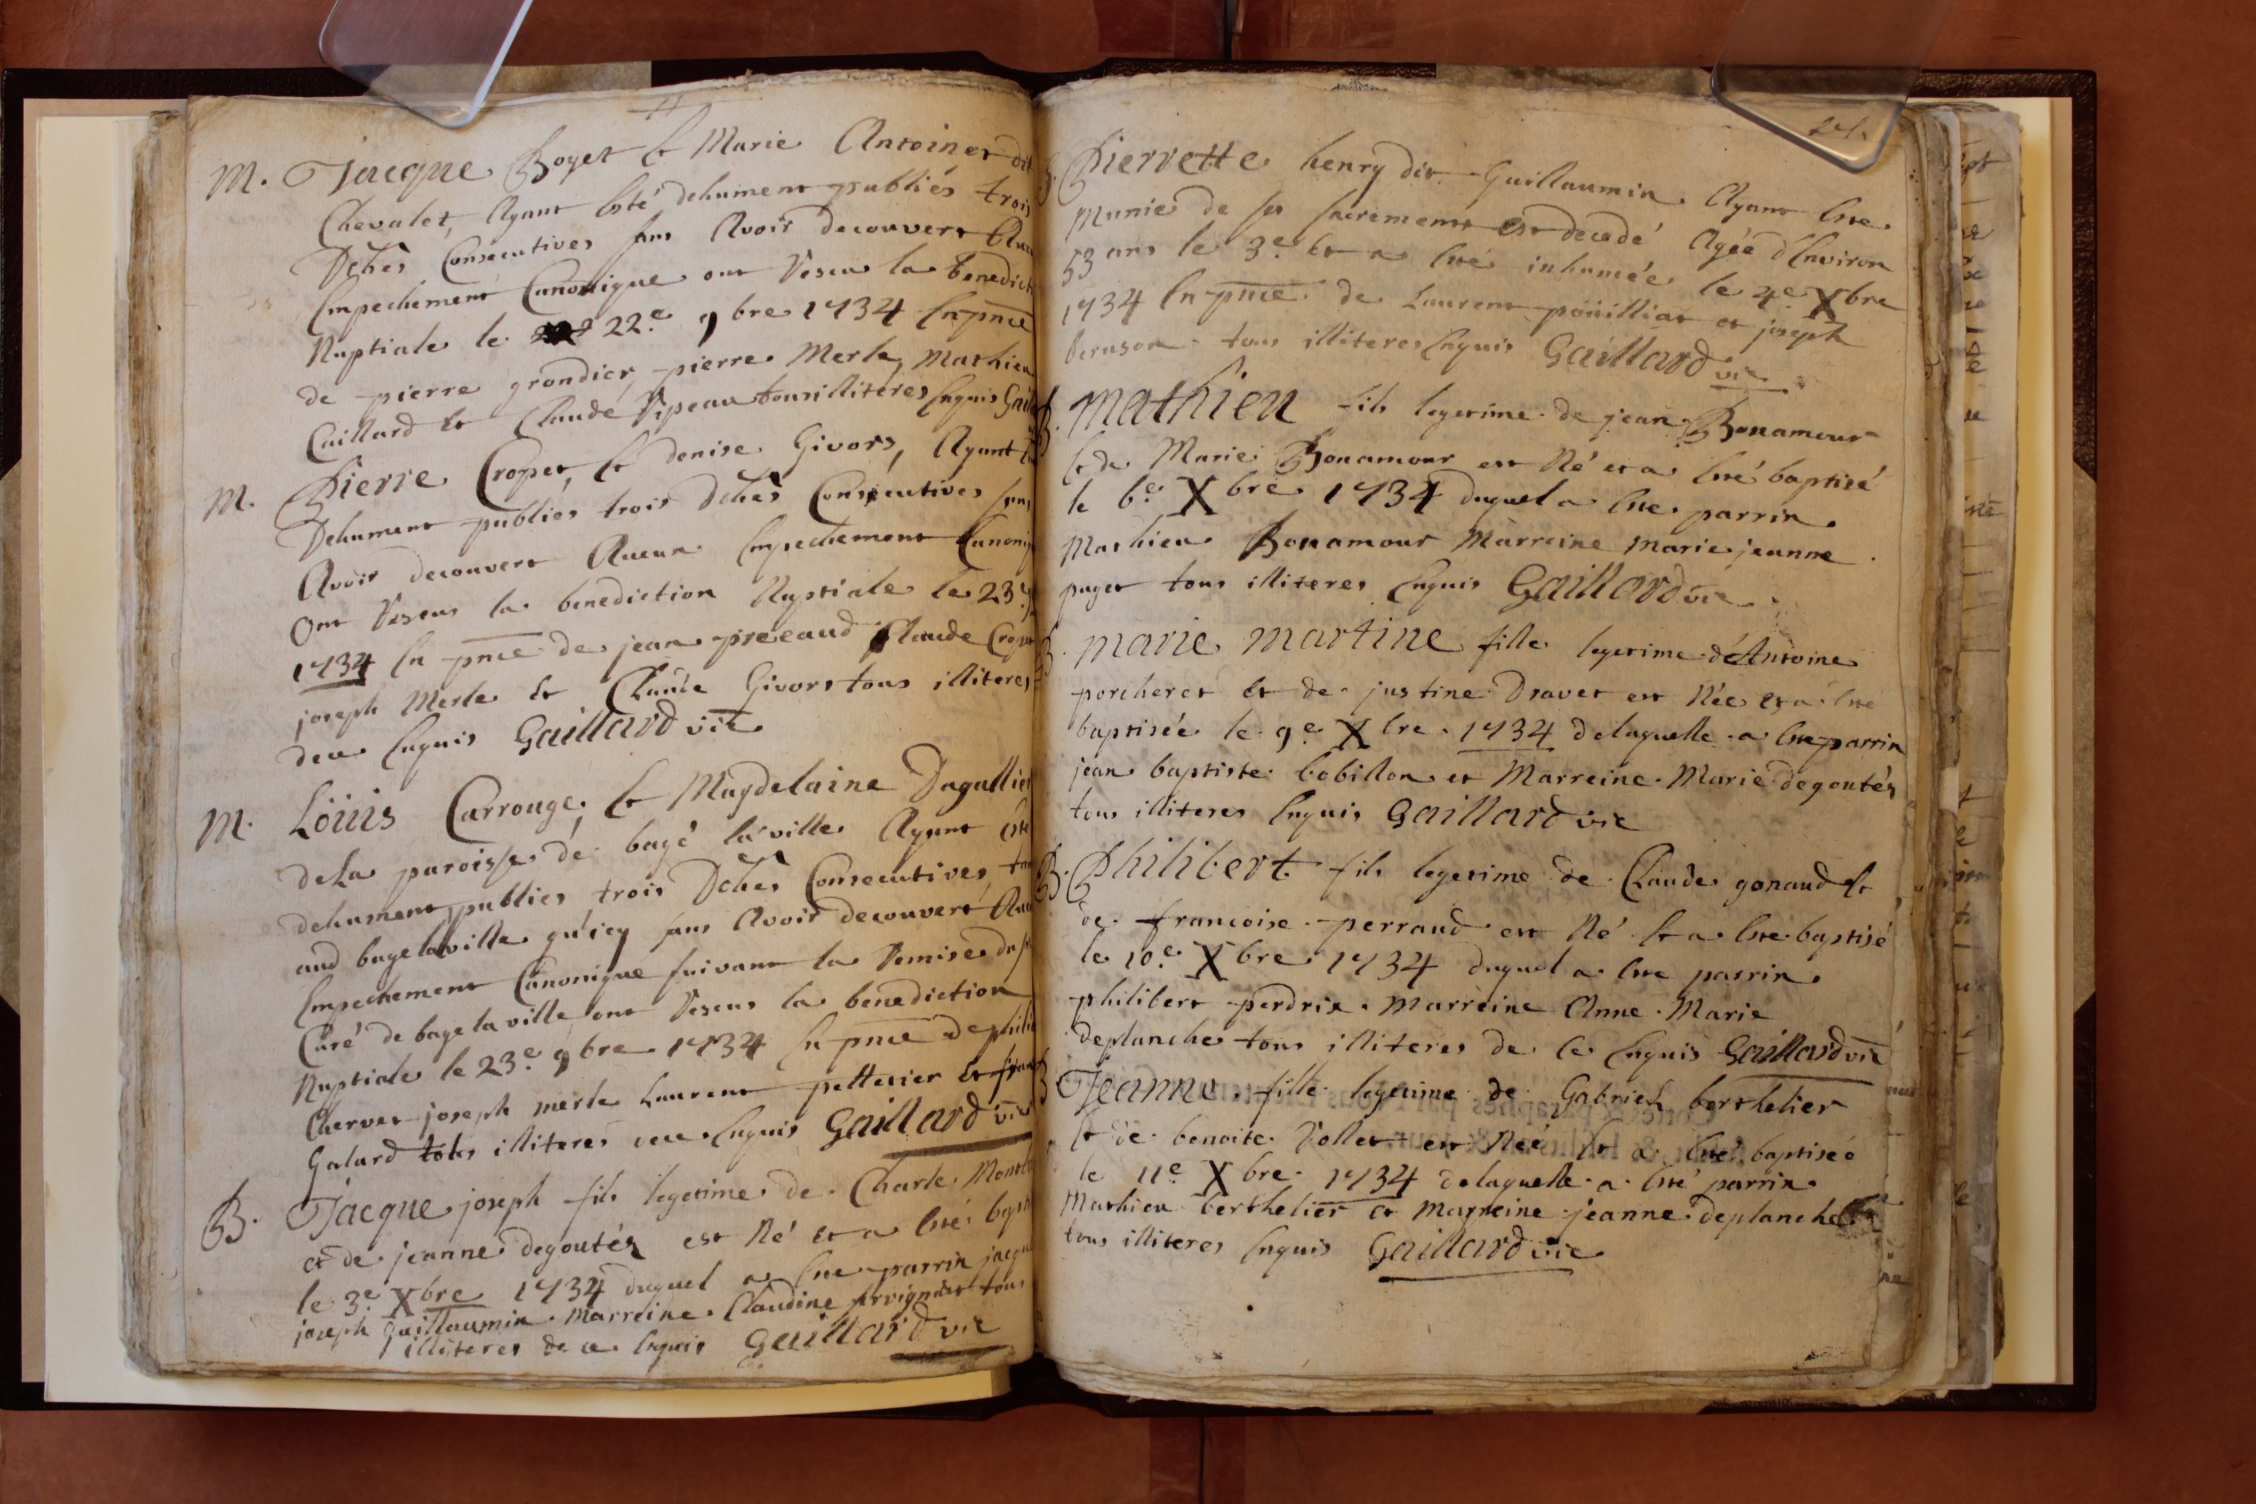 M. Jacque Boyet Et Marie Antoinet dit
Chevalet, Ayant Esté dehument publiés trois
Dches Consecutives sans Avoir decouvert Aucu
Empechement Canonique ont Reseu la benedict
Nuptiale le 22e 9bre 1734 En pnce
de pierre grandier, pierre Merle, Mathieu
Caillard Et Claude Ripeau tous illiteres Enquis Gail
M. Pierre Cropet, Et denise Givors, Ayant
Dehument publiés trois Dches Consecutives sans
Avoir decouvert Aucun Empechement Canoniq
Ont Reseus la benediction Nuptiale le 23e
1734 En pnce de jean preeaud Claude Crop
joseph Merle Et Claude Givors tous illiteres
dece Enquis Gaillard vic
M. Löüis Carrouge, Et Magdelaine Dagallier
deLa paroisse dé bagé la ville Ayant Esté
dehument publies trois Dches Consecutives, tan
aud bage laville qu'icy sans Avoir decouvert Auc
Empechement Canonique suivant la Remise du s
Curé de bage la ville ont Reseus la benediction
Nuptiale le 23e 9bre 1734 En pnce de phili
Chervet joseph merle Laurent pelletier Et fran
Galard tous illiteres dece Enquis Gaillard vic
B. Jacque joseph fils legetime de Charle Mont
et de jeanne degoutés est Né Et a Esté bapt
le 3e Xbre 1734 duquel a Esté parrin jacqu
joseph guillaumin Marreine Claudine tous
illiteres de ce Enquis Gaillard vic
24.
Pierrette henry dit Guillaumin Ayant Esté
Munie de ses sacrements est decedé Agée d'Environ
53 ans le 3e Et a Esté inhumée le 4e Xbre
1734 En pnce de Laurent poüilliat et joseph
tous illiteres Enquis Gaillard vic
B. Mathieu fils legetime de jean Bonamour
Et de Marie Bonamour est Né et a Esté baptisé
le 6e Xbre 1734 duquel a Esté parrin
Mathieu Bonamour Marreine Marie jeanne
puget tous illiteres Enquis Gaillard vic
B. Marie Martine fille legetime d'Antoine
porcheret Et de justine Dravet est Née et a Esté
baptisée le 9e Xbre 1734 delaquelle a Esté parrin
jean baptiste bobillon et Marreine Marie degoutés
tous illiteres Enquis Gaillard vic
B. Philibert fils legetime de Claude gonaud Et
de francoise perraud est Né Et a Esté baptisé
le 10e Xbre 1734 duquel a Esté parrin
philibert perdrix Marreine Anne Marie
deplanche tous illiteres de ce Enquis Gaillard vic
B Jeanne fille legetime de Gabriel berthelier
Et de benoite Vollet est Neé Et a Esté baptiseé
le 11e Xbre 1734 delaquelle a Esté parrin
Mathieu berthelier et Marreine jeanne deplanche
tous illiteres Enquis Gaillard vic